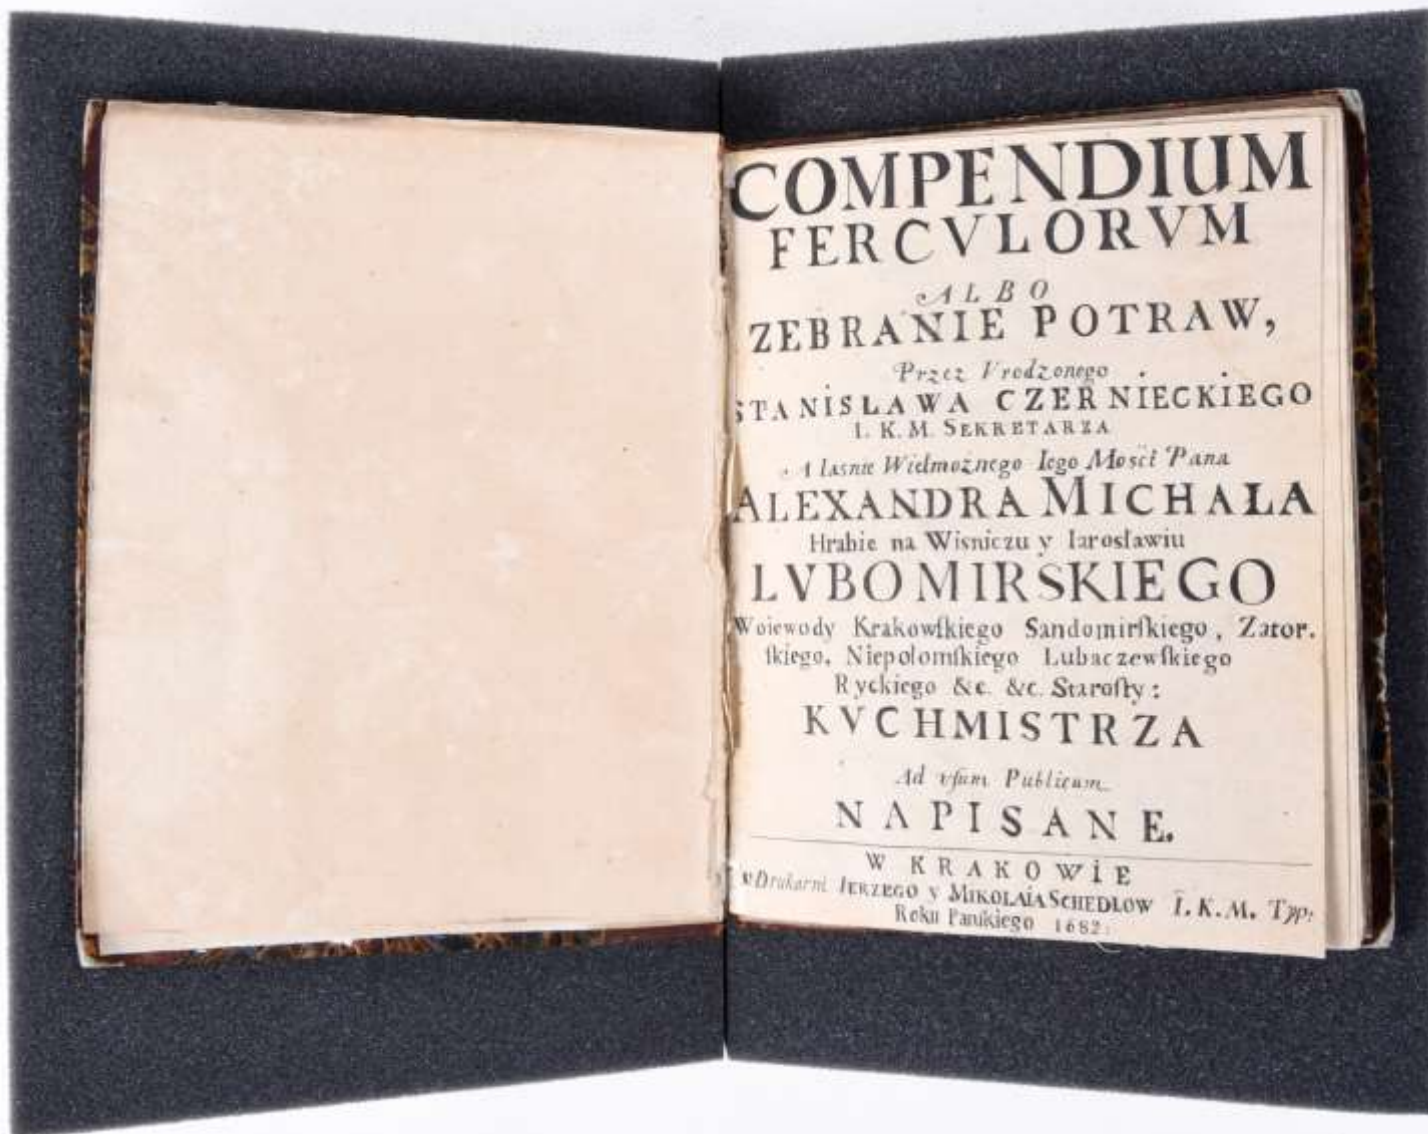 COMPENDIUM
FERCVLORVM
ALBO
ZEBRANIE POTRAW,
Przez Vrodzonego
STANISŁAWA CZERNIECKIEGO
I. K. M. SEKRETARZA
A Iasnie Wielmożnego Iego Mości Pana
ALEXANDRA MICHAŁA
Hrabie na Wisniczu y Iarosławiu
LVBOMIRSKIEGO
Woiewody Krakowſkiego Sandomirſkiego, Zator.
ſkiego, Niepołomſkiego Lubaczewſkiego
Ryckiego &c. &c. Staroſty:
KVCHMISTRZA
Ad vſum Publicum
NAPISANE.
W KRAKOWIE
w Drukarni IERZEGO y MIKOLAIA SCHEDLOW I. K. M. Typ:
Roku Pańskiego 1682.